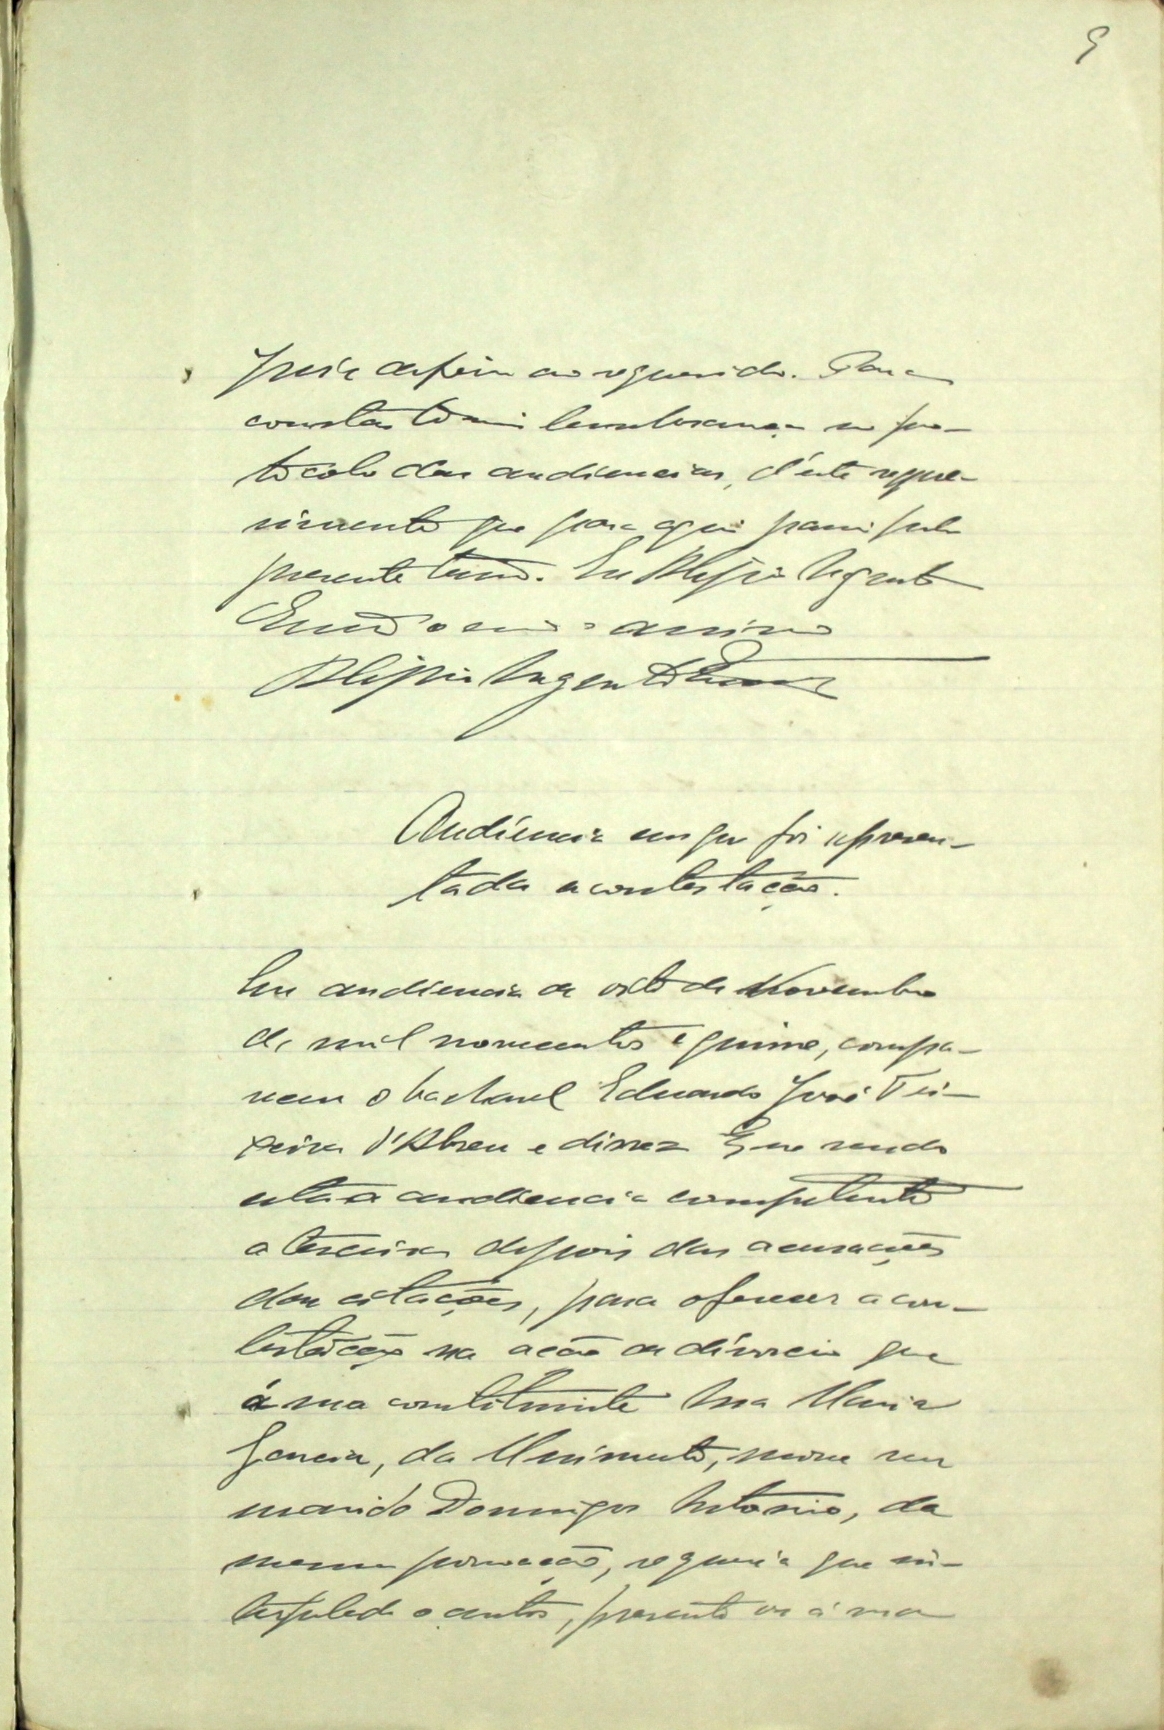 9
Juiz deferiu ao requerido. Para
constar tomei lembrança no pro-
tocolo das audiencias, d'este reque-
rimento que para aqui passei pelo
presente termo. Eu Alipio
o escrevi e assino
Alipio
Audiencia em que foi apresen-
tada a contestação.
Em audiencia de oito de Novembro
de mil novecentos e quinze, compa-
receu o bacharel Eduardo José Tei-
xeira d'Abreu e disse: Que sendo
esta a audiencia competente
a terceira depois das acusações
das citações, para oferecer a con-
testação na acção de divorcio que
á sua constituinte Maria
Garcia, da move seu
marido Domingos Antonio, da
mesma povoação, requeria que in-
terpelado o autor, presente ou á sua